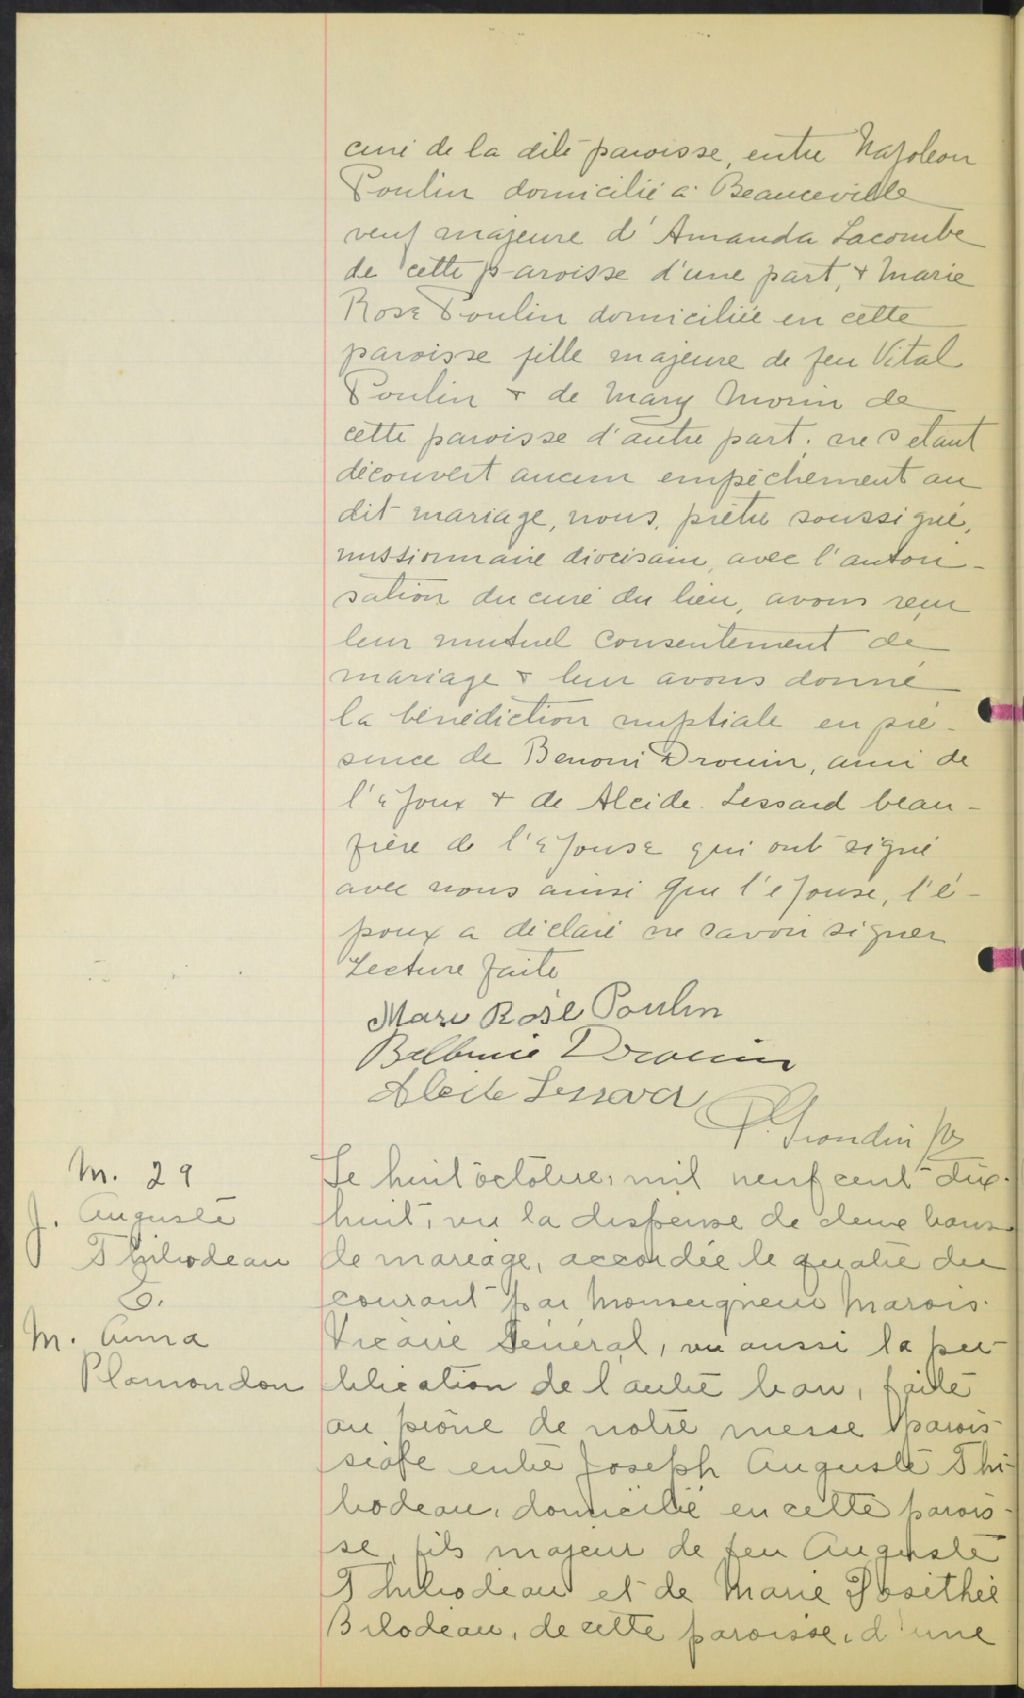 curé de la dite paroisse, entre Napoleon
Poulin domicilié à Beauceville
veuf majeure d'Amanda Lacombe
de cette paroisse d'une part, & Marie
Rose Poulin domiciliée en cette
paroisse fille majeure de feu Vital
Poulin & de Mary Morin de
cette paroisse d'autre part; ne s'étant
découvert aucun empêchement au
dit mariage, nous, prêtre soussigné,
missionnaire diocésain, avec l'autori-
sation du curé du lieu, avons reçu
leur mutuel consentement de
mariage & leur avons donné
la bénédiction nuptiale en pré-
sence de Benoni Drouin, ami de
l'époux & de Alcide Lessard beau-
frère de l'épouse qui ont signé
avec nous ainsi que l'épouse, l'é-
poux a déclaré ne savoir signer
Lecture faite
Marie Rose Poulin
Drouin
Alcide Lessard
P. Grondin ptre
M. 29
J. Auguste
Thibodeau
&
M. Anna
Plamondon
Le huit octobre, mil neuf cent dix-
huit, vu la dispense de deux bans
de mariage, accordée le quatre du
courant par Monseigneur Marois
Vicaire Général, vu aussi la pu-
blication de l'autre ban, faite
au prône de notre messe parois-
siale entre Joseph Auguste Thi-
bodeau, domicilié en cette parois-
se, fils majeur de feu Auguste
Thibodeau et de Marie Dosithée
Bilodeau, de cette paroisse, d'une